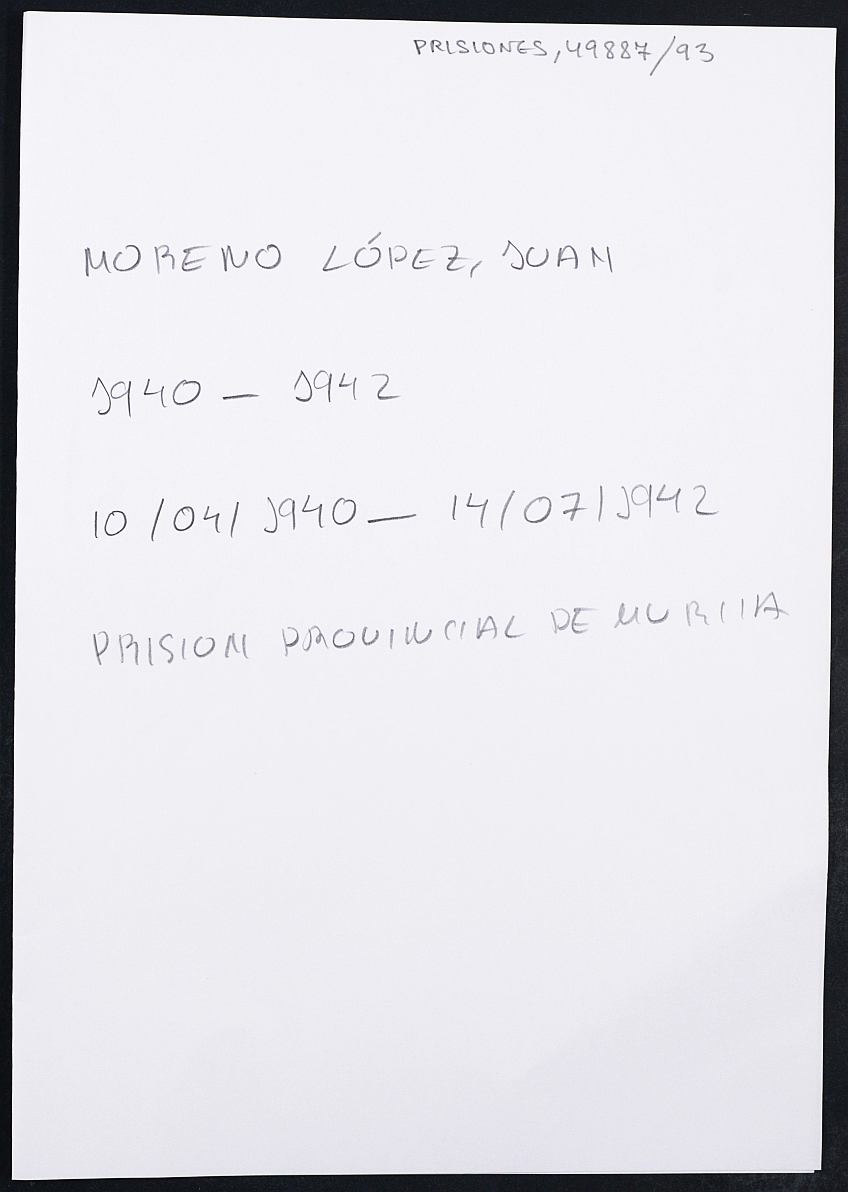 PRISIONES, 49887/93
MORENO LÓPEZ, JUAN
1940 – 1942
10/04/1940 – 14/07/1942
PRISION PROVINCIAL DE MURCIA